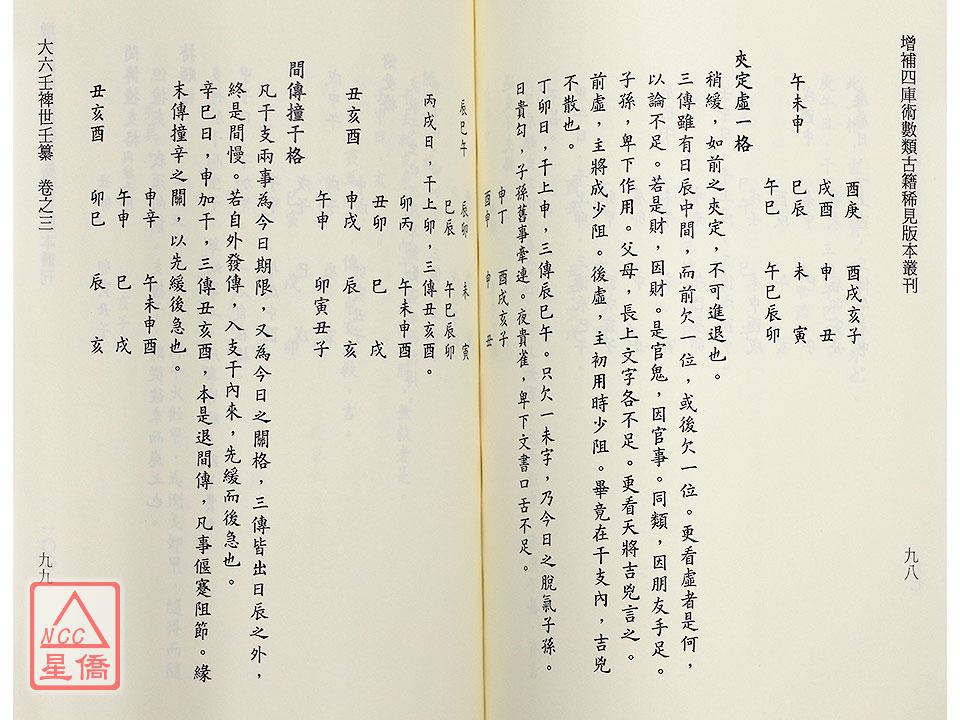 增補四庫術數類古籍稀見版本叢刊
九八
酉庚　酉戌亥子
戌酉　申　丑
午未申　巳辰　未　寅
午巳　午巳辰卯
夾定虛一格
稍緩，如前之夾定，不可進退也。
三傳雖有日辰中間，而前欠一位，或後欠一位。更看虛者是何，
以論不足。若是財，因財。是官鬼，因官事。同類，因朋友手足。
子孫，卑下作用。父母，長上文字各不足。更看天將吉兇言之。
前虛，主將成少阻。後虛，主初用時少阻。畢竟在干支內，吉兇
不散也。
丁卯日，干上申，三傳辰巳午。只欠一未字，乃今日之脫氣子孫。
日貴勾，子孫舊事牽連。夜貴雀，卑下文書口舌不足。
申丁　酉戌亥子
酉申　申　丑
辰巳午　辰卯　未　寅
巳辰　午巳辰卯
丙戌日，干上卯，三傳丑亥酉。
卯丙　午未申酉
丑卯　巳　戌
丑亥酉　申戌　辰　亥
午申　卯寅丑子
間傳撞干格
凡干支兩事為今日期限，又為今日之關格，三傳皆出日辰之外，
終是間慢。若自外發傳，入支干內來，先緩而後急也。
辛巳日，申加干，三傳丑亥酉，本是退間傳，凡事偃蹇阻節。緣
末傳撞辛之關，以先緩後急也。
申辛　午未申酉
午申　巳　戌
丑亥酉　卯巳　辰　亥
大六壬裨世壬纂　卷之三
九九
NCC
星僑